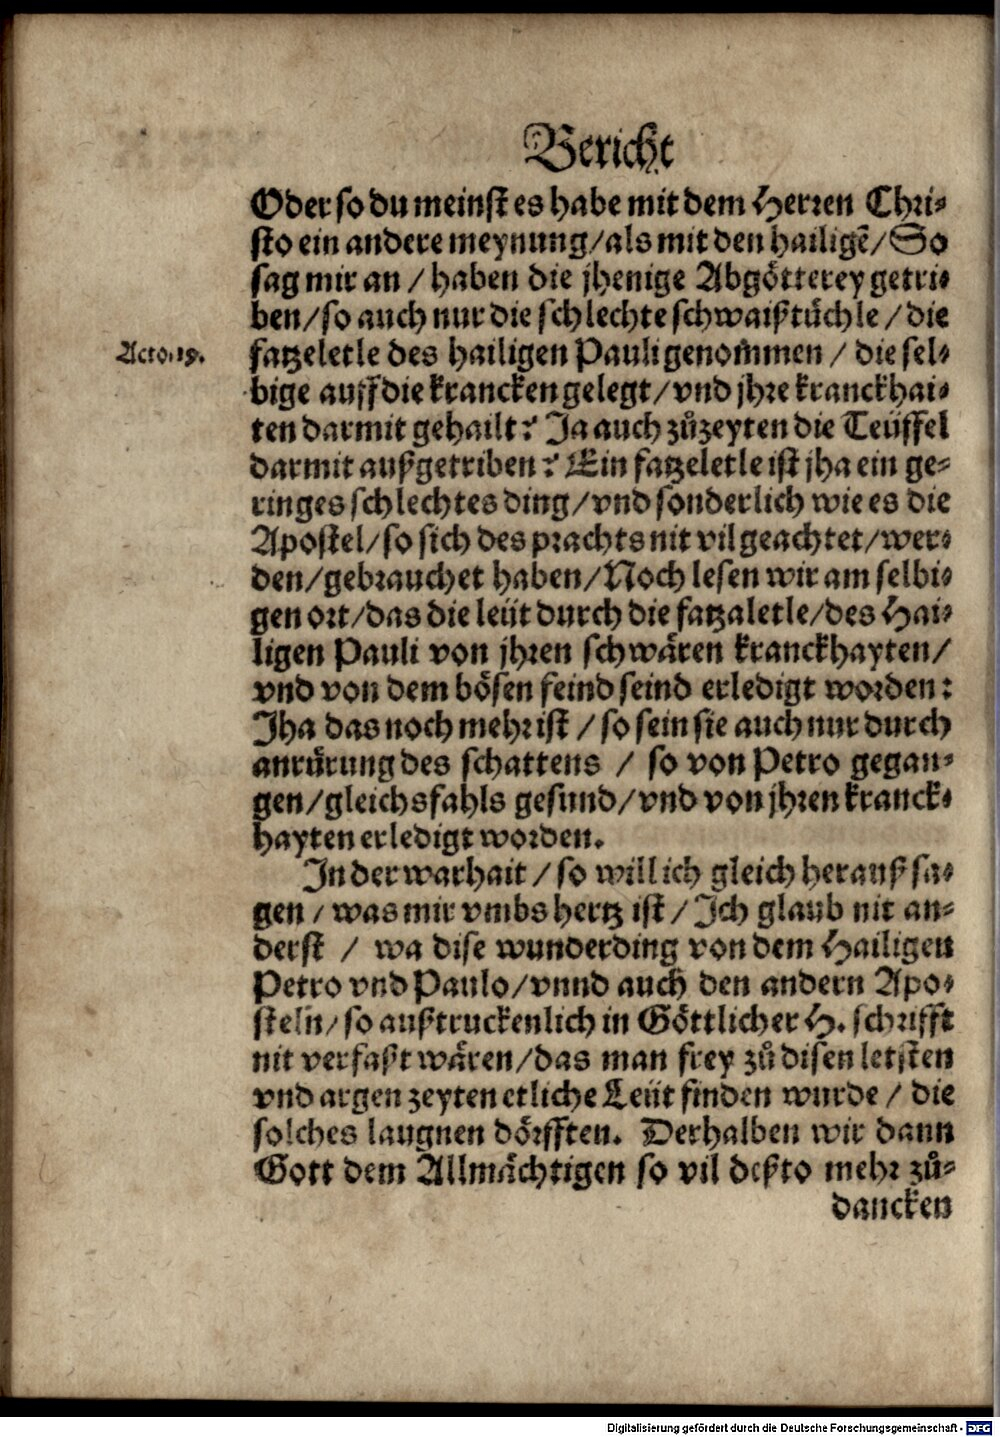 Bericht
Oder so du meinst es habe mit dem Herren Chri⸗
sto ein andere meynung/als mit den hailigē/So
sag mir an / haben die jhenige Abgötterey getri⸗
ben/so auch nur die schlechte schwaißtüchle / die
Acto. 19.
fatzeletle des hailigen Pauli genom̄men / die sel⸗
bige auff die krancken gelegt/vnd jhre kranckhai⸗
ten darmit gehailt? Ja auch zůzeyten die Teüffel
darmit außgetriben? Ein fatzeletle ist jha ein ge⸗
ringes schlechtes ding/vnd sonderlich wie es die
Apostel/so sich des prachts nit vil geachtet/wer⸗
den/gebrauchet haben/Noch lesen wir am selbi⸗
gen ort/das die leüt durch die fatzaletle/des Hai⸗
ligen Pauli von jhren schwären kranckhayten/
vnd von dem bösen feind seind erledigt worden:
Jha das noch mehr ist / so sein sie auch nur durch
anrürung des schattens / so von Petro gegan⸗
gen/gleichsfahls gesund/vnd von jhren kranck⸗
hayten erledigt worden.
In der warhait / so will ich gleich herauß sa⸗
gen / was mir vmbs hertz ist / Ich glaub nit an⸗
derst / wa dise wunderding von dem Hailigen
Petro vnd Paulo/vnnd auch den andern Apo⸗
steln/so außtruckenlich in Göttlicher H. schrifft
nit verfaßt wären/das man frey zů disen letsten
vnd argen zeyten etliche Leüt finden wurde / die
solches laugnen dörfften. Derhalben wir dann
Gott dem Allmächtigen so vil deßto mehr zů⸗
dancken
Digitalisierung gefördert durch die Deutsche Forschungsgemeinschaft - DFG